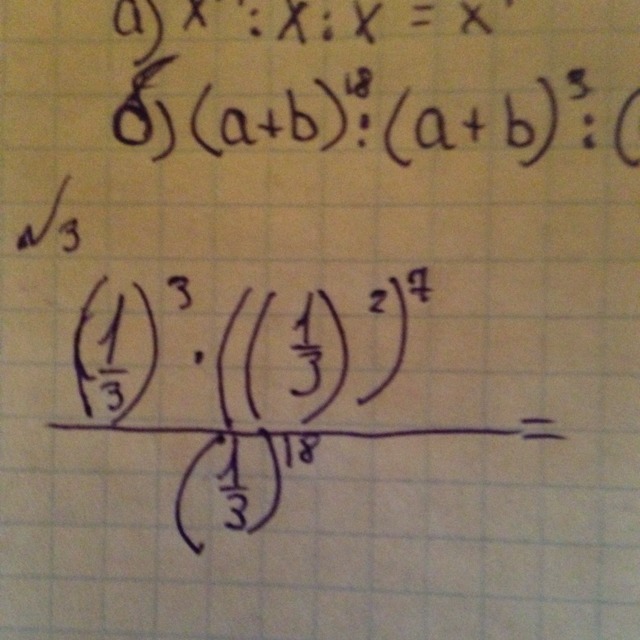 а) x : x : x = x
б) (a+b)¹⁸ : (a+b)³ : (
√3
(1/3)³ · ((1/3)²)⁷
=
(1/3)¹⁸